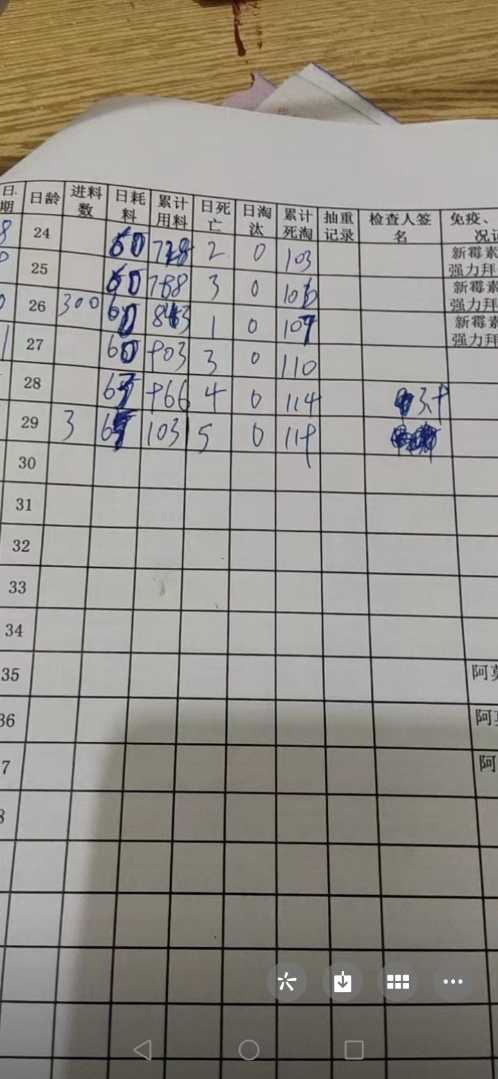 日期 日龄 进料数 日耗料 累计用料 日死亡 日淘汰 累计死淘 抽重记录 检查人签名 免疫、
8 24 60 728 2 0 103 新霉素 强力拜
25 60 788 3 0 106 新霉素 强力拜
26 300 60 843 1 0 107 新霉素 强力拜
27 60 903 3 0 110
28 4 0 114
29 3 1031 5 0 119
30
31
32
33
34
35
36
7
8